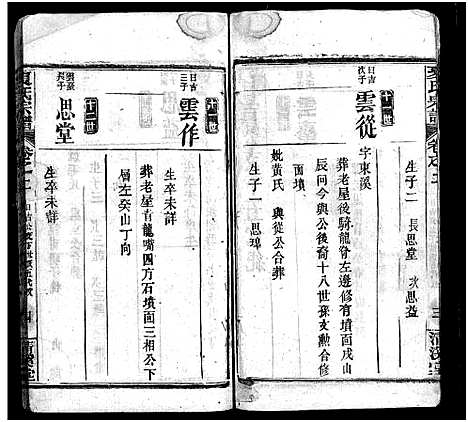 生子二 長思堂 次思益
十二世
日吉次子
雲從
字東溪
葬老屋後騎龍脊左邊修有墳面戌山
辰向今與公後裔十八世孫支勲合修
妣黃氏 與從公合葬
生子一 思瑋
十二世
日吉三子
雲作
生卒未詳
葬老屋青龍嘴四方石墳面三相公下
層左癸山丁向
十三世
思堂
生卒未詳